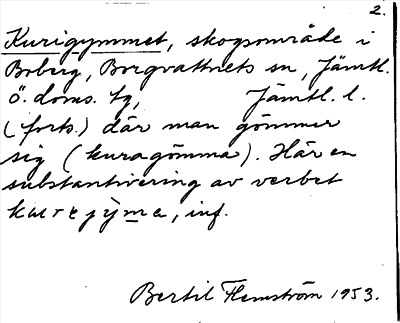 2.
Kurigymmet, skogsområde i
Boberg, Borgvattnets sn, Jämtl.
Ö. doms. tg, Jämtl. l.
(forts.) där man gömmer
sig (kuragömma). Här en
substantivering av verbet
kurejỳma, inf.
Bertil Flemström 1953.